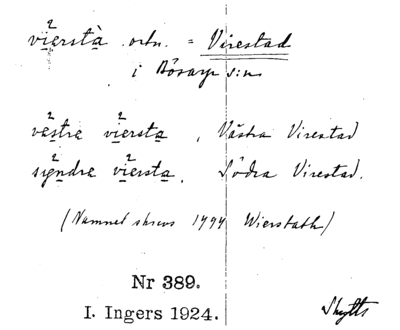 vierstà ortn. = Virestad
i Bösarp sn
västra viersta, Västra Virestad
syndra viersta, Södra Virestad.
(Namnet skrevs 1494 Wierstath)
Nr 389.
I. Ingers 1924.
Skytts